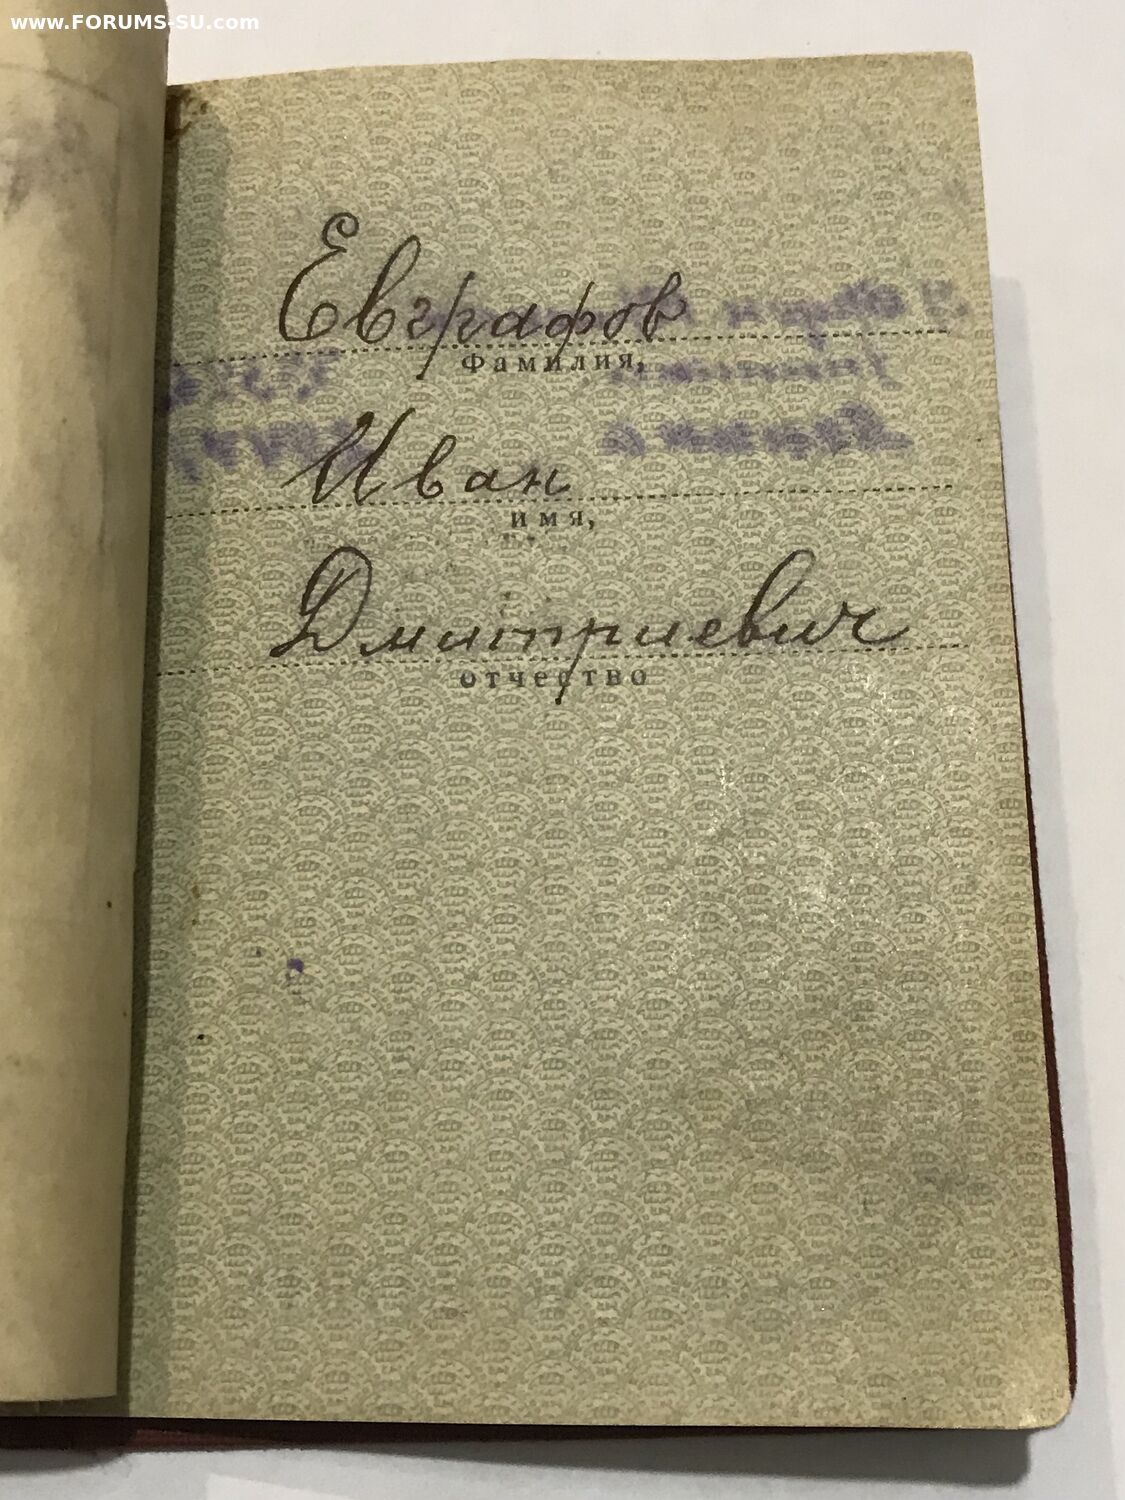 www.FORUMS-SU.com
Евграфов
Фамилия,
Иван
имя,
Дмитриевич
отчество